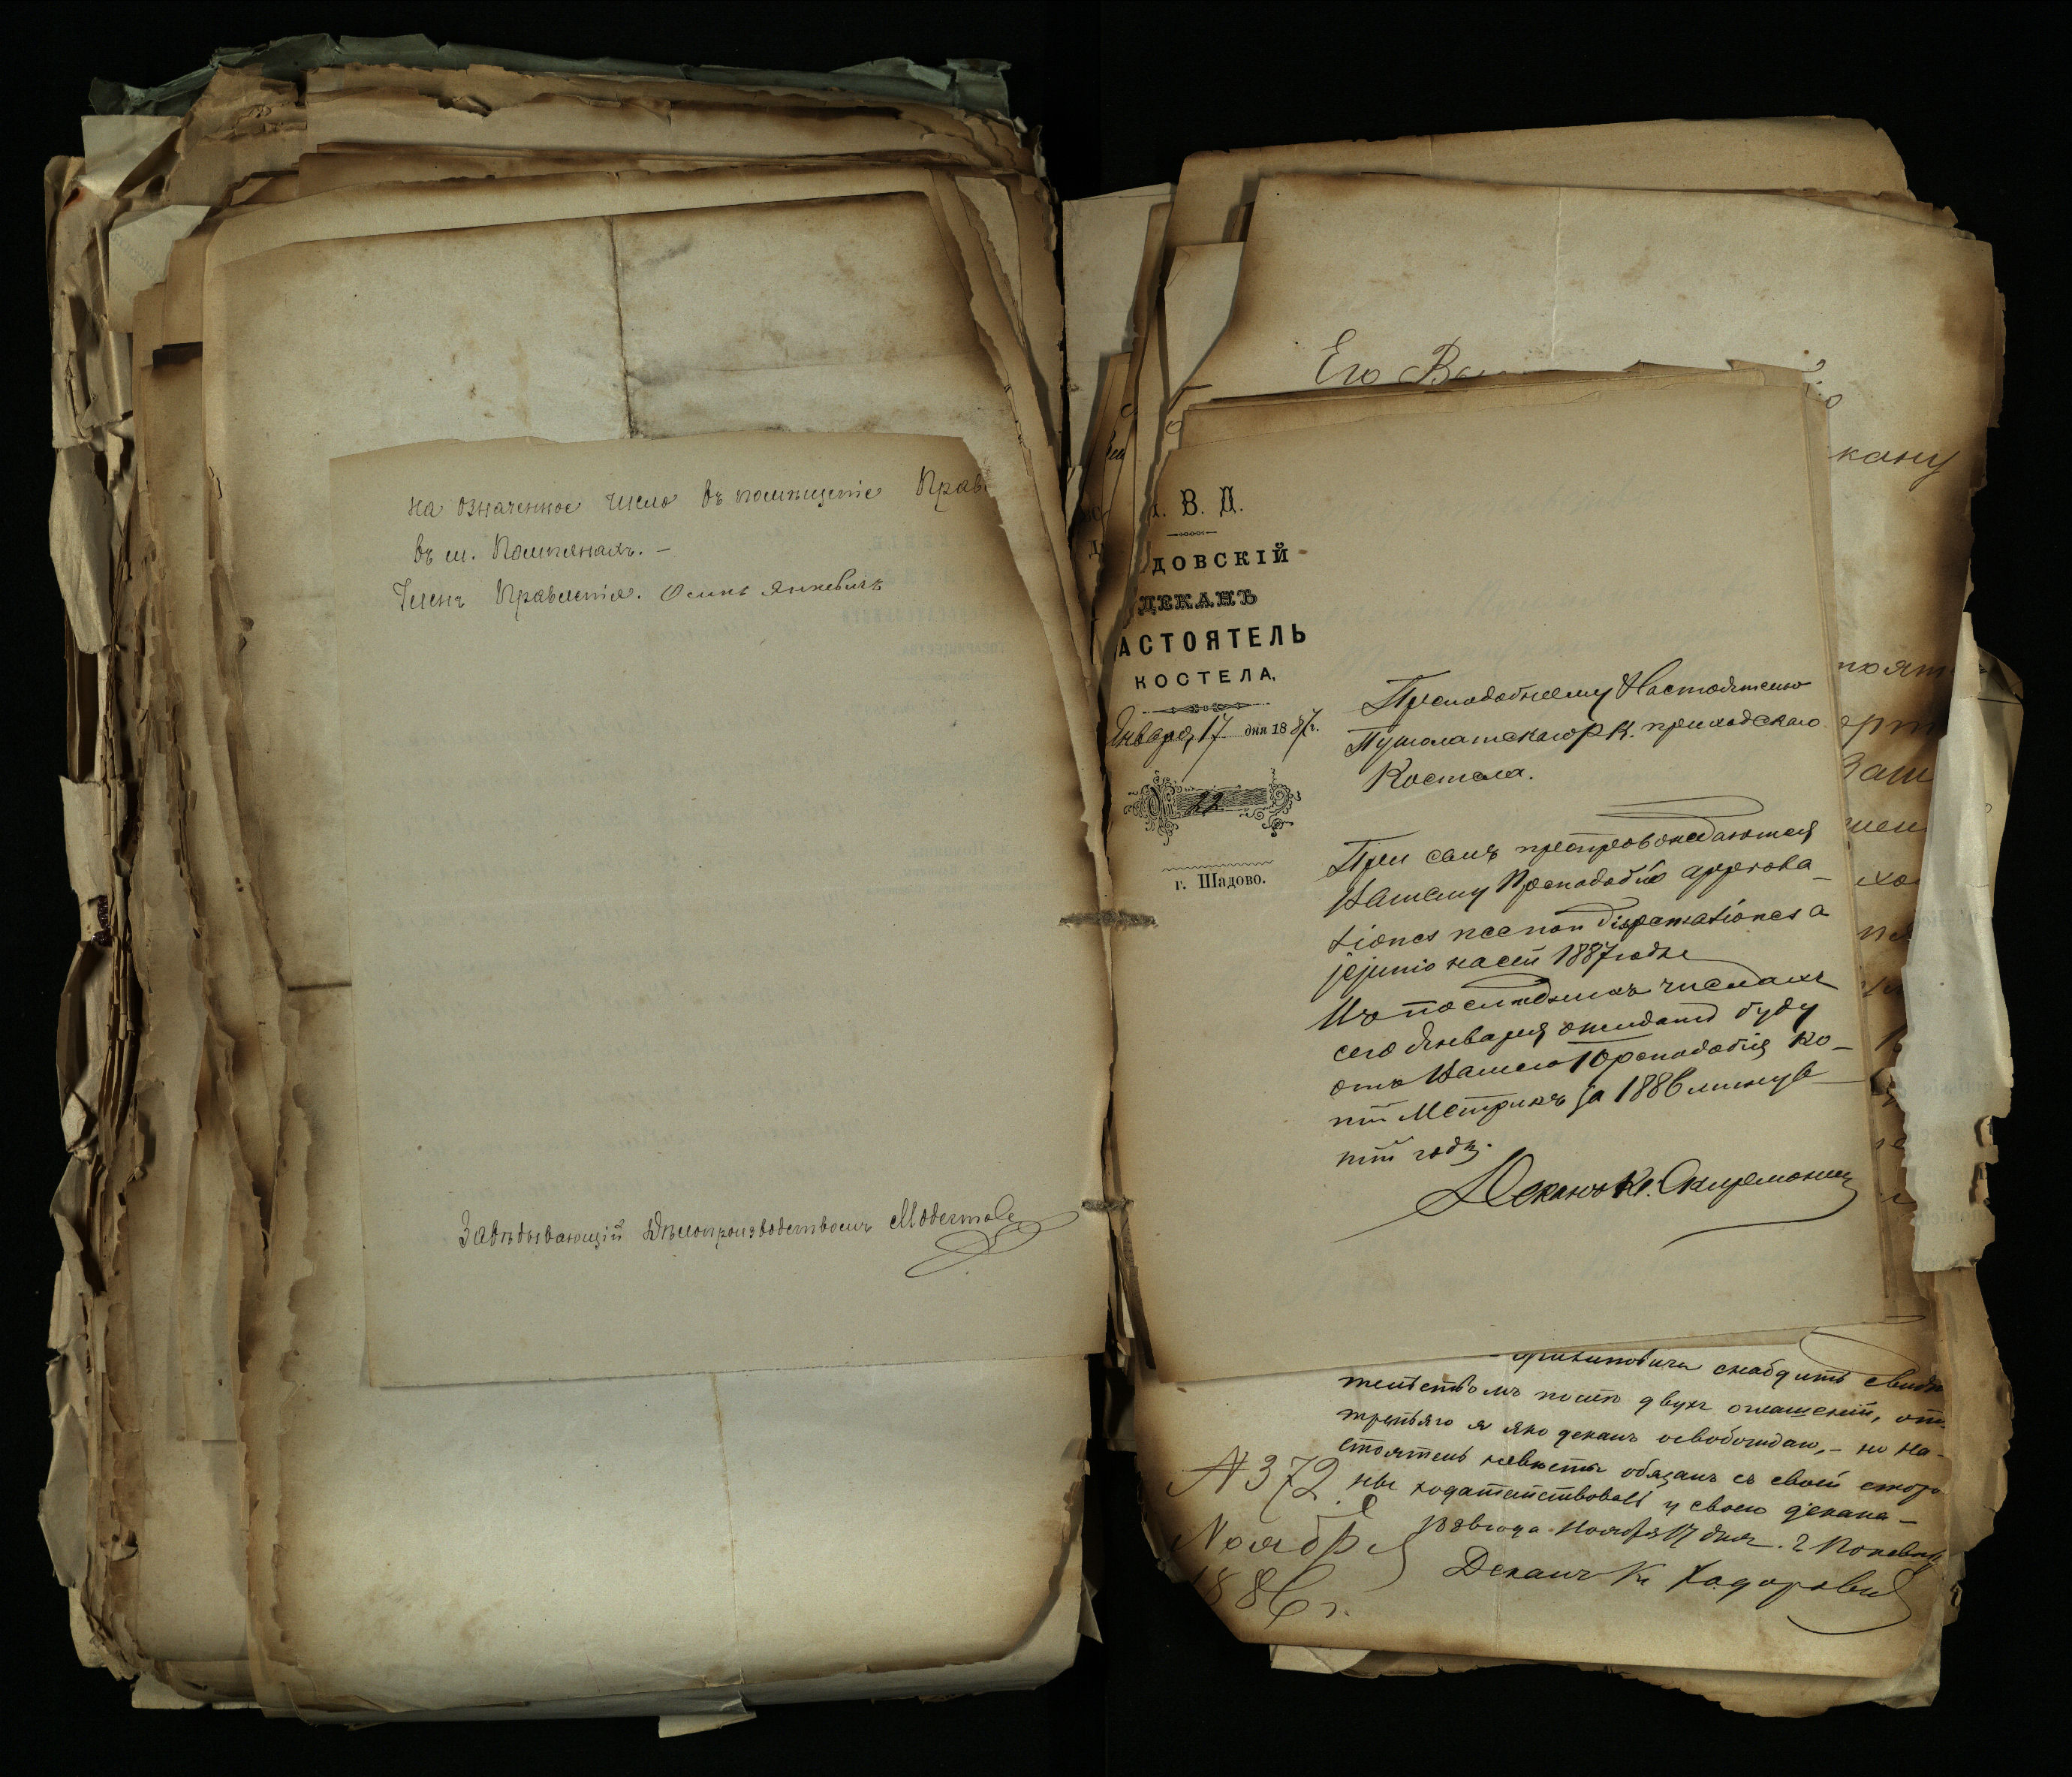 на означенное число въ помѣщеніе Прав
въ м. Помпянахъ. –
Членъ Правленія. Осипъ Янкевичъ
Завѣдывающій Дѣлопроизводствомъ
Его
кану
. В. Д.
ДОВСКІЙ
ДЕКАНЪ
АСТОЯТЕЛЬ
КОСТЕЛА,
Января 17 дня 1887 г.
№ 22
г. Шадово.
Преподобнему Настоятелю
Пушолатскаго Р. К. приходскаго
Костела.
При семъ препровождаются
Вашему Преподобію approba-
tiones nec non dispensationes a
jejunio на сей 1887 годъ
Въ последнихъ числахъ
сего Января ожидать буду
отъ Вашего Преподобія ко-
піи Метрикъ за 1886 минув-
шій годъ.
Деканъ Кс.
снабдить свидѣ
тельствомъ послѣ двухъ оглашеній, отъ
третьяго я яко деканъ освобождаю, – но на-
стоятель невѣсты обязанъ съ своей сторо
ны ходатайствовать у своего декана –
1886 года Ноября 17 дня. г Поневѣж
Деканъ Кс
N 372
Ноября
1886 г.